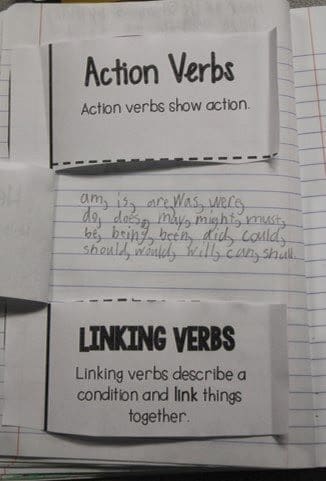 Action Verbs
Action verbs show action.
am, is, are, was, were,
do, does, may, might, must,
be, being, been, did, could,
should, would, will, can, shall.
LINKING VERBS
Linking verbs describe a
condition and link things
together.